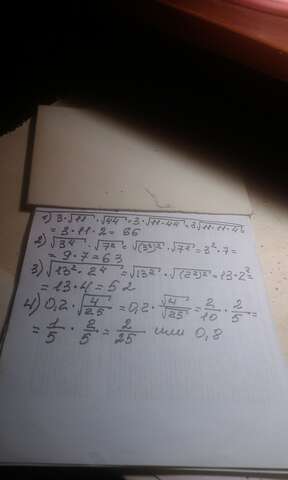 1) 3·√11 · √44 = 3·√11·44 = 3√11·11·4 =
= 3·11·2 = 66
2) √3⁴ · √7² = √(3²)² · √7² = 3²·7 =
= 9·7 = 63
3) √13²·2⁴ = √13² · √(2²)² = 13·2² =
= 13·4 = 52
4) 0,2·√4/25 = 0,2 · √4/√25 = 2/10 · 2/5 =
= 1/5 · 2/5 = 2/25 или 0,8